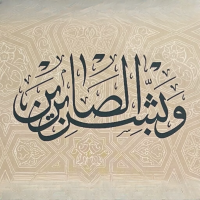 وبشر الصابرين